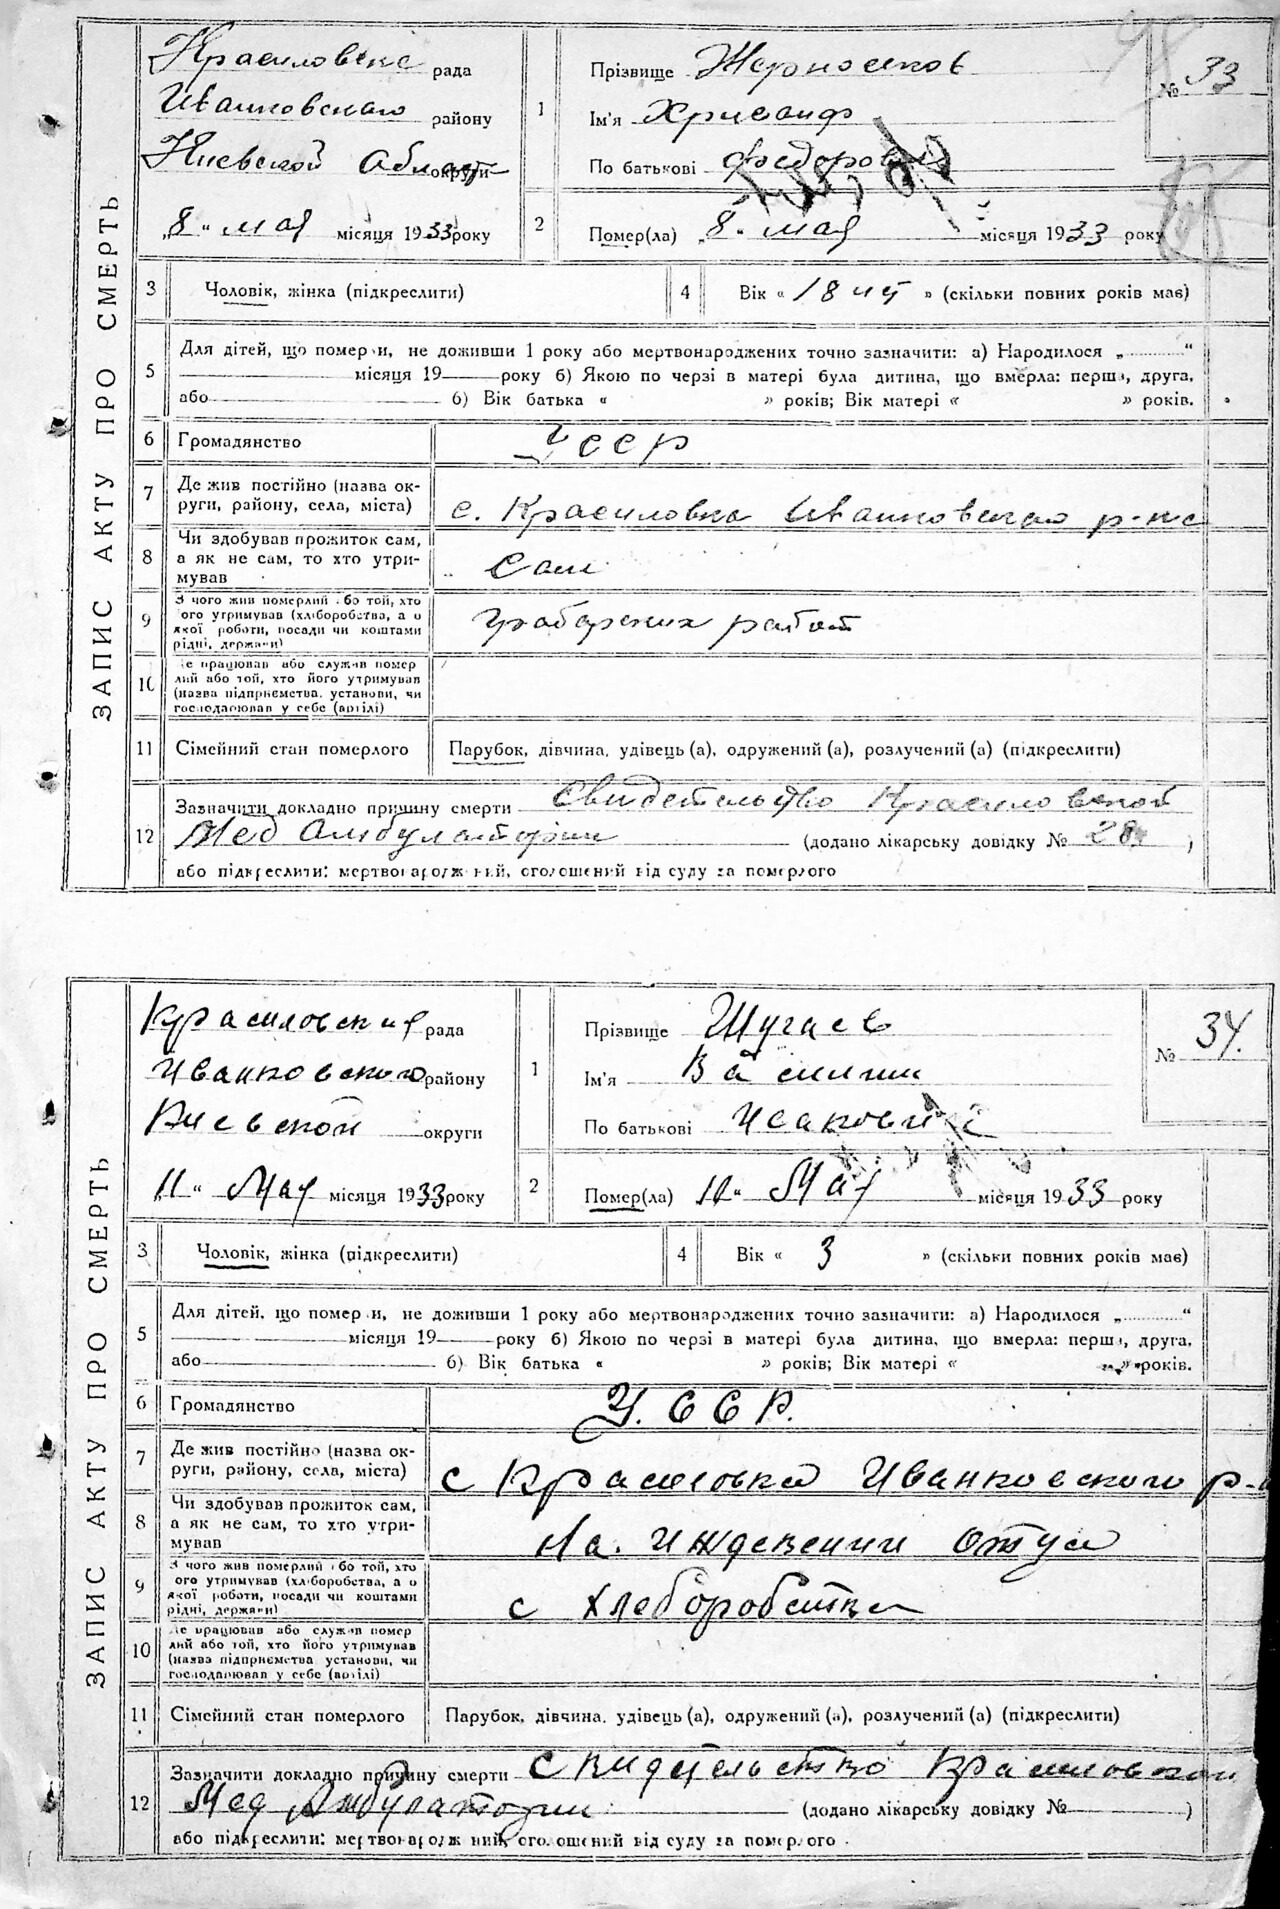 ЗАПИС АКТУ ПРО СМЕРТЬ
Красиловска рада
Иванковского району
Киевской Област округи
„8“ мая місяця 1933 року
1
Прізвище Жерносеков
Ім'я Хрисанф
По батькові Федорович
№ 33
2
Помер(ла) „8“ мая місяця 1933 року
3 Чоловік, жінка (підкреслити)
4 Вік « 18 » (скільки повних років має)
5
Для дітей, що померли, не доживши 1 року або мертвонароджених точно зазначити: а) Народилося „ “
місяця 19 року б) Якою по черзі в матері була дитина, що вмерла: перша, друга,
або б) Вік батька « » років; Вік матері « » років.
6 Громадянство УССР
7 Де жив постійно (назва ок-
руги, району, села, міста) с. Красиловка Иванковского р-на
8 Чи здобував прожиток сам,
а як не сам, то хто утри-
мував Сам
9 З чого жив померлий або той, хто
його утримував (хліборобства, а о
якої роботи, посади чи коштами
рідні, держави) грабарских работ
10 Де працював або служив помер
лий або той, хто його утримував
(назва підприємства, установи, чи
господарював у себе (артілі)
11 Сімейний стан померлого Парубок, дівчина, удівець (а), одружений (а), розлучений (а) (підкреслити)
12 Зазначити докладно причину смерти Свидетельство Красиловской
Мед Амбулатории (додано лікарську довідку № )
або підкреслити: мертвонароджений, оголошений від суду за померлого
ЗАПИС АКТУ ПРО СМЕРТЬ
Красиловский рада
Иванковского району
Киевской округи
11“ Мая місяця 1933 року
1
Прізвище Шугаев
Ім'я Василий
По батькові Исакович
№ 34.
2
Помер(ла) „ Мая місяця 1933 року
3 Чоловік, жінка (підкреслити)
4 Вік « 3 » (скільки повних років має)
5
Для дітей, що померли, не доживши 1 року або мертвонароджених точно зазначити: а) Народилося „ “
місяця 19 року б) Якою по черзі в матері була дитина, що вмерла: перша, друга,
або б) Вік батька « » років; Вік матері « » років.
6 Громадянство У.ССР.
7 Де жив постійно (назва ок-
руги, району, села, міста) с Красиловка Иванковского р-
8 Чи здобував прожиток сам,
а як не сам, то хто утри-
мував На. иждевении отца
9 З чого жив померлий або той, хто
його утримував (хліборобства, а о
якої роботи, посади чи коштами
рідні, держави) с хлеборобства
10 Де працював або служив помер
лий або той, хто його утримував
(назва підприємства установи, чи
господарював у себе (артілі)
11 Сімейний стан померлого Парубок, дівчина, удівець (а), одружений (а), розлучений (а) (підкреслити)
12 Зазначити докладно причину смерти Свидетельство Красиловской
Мед Амбулатории (додано лікарську довідку № )
або підкреслити: мертвонароджений, оголошений від суду за померлого.